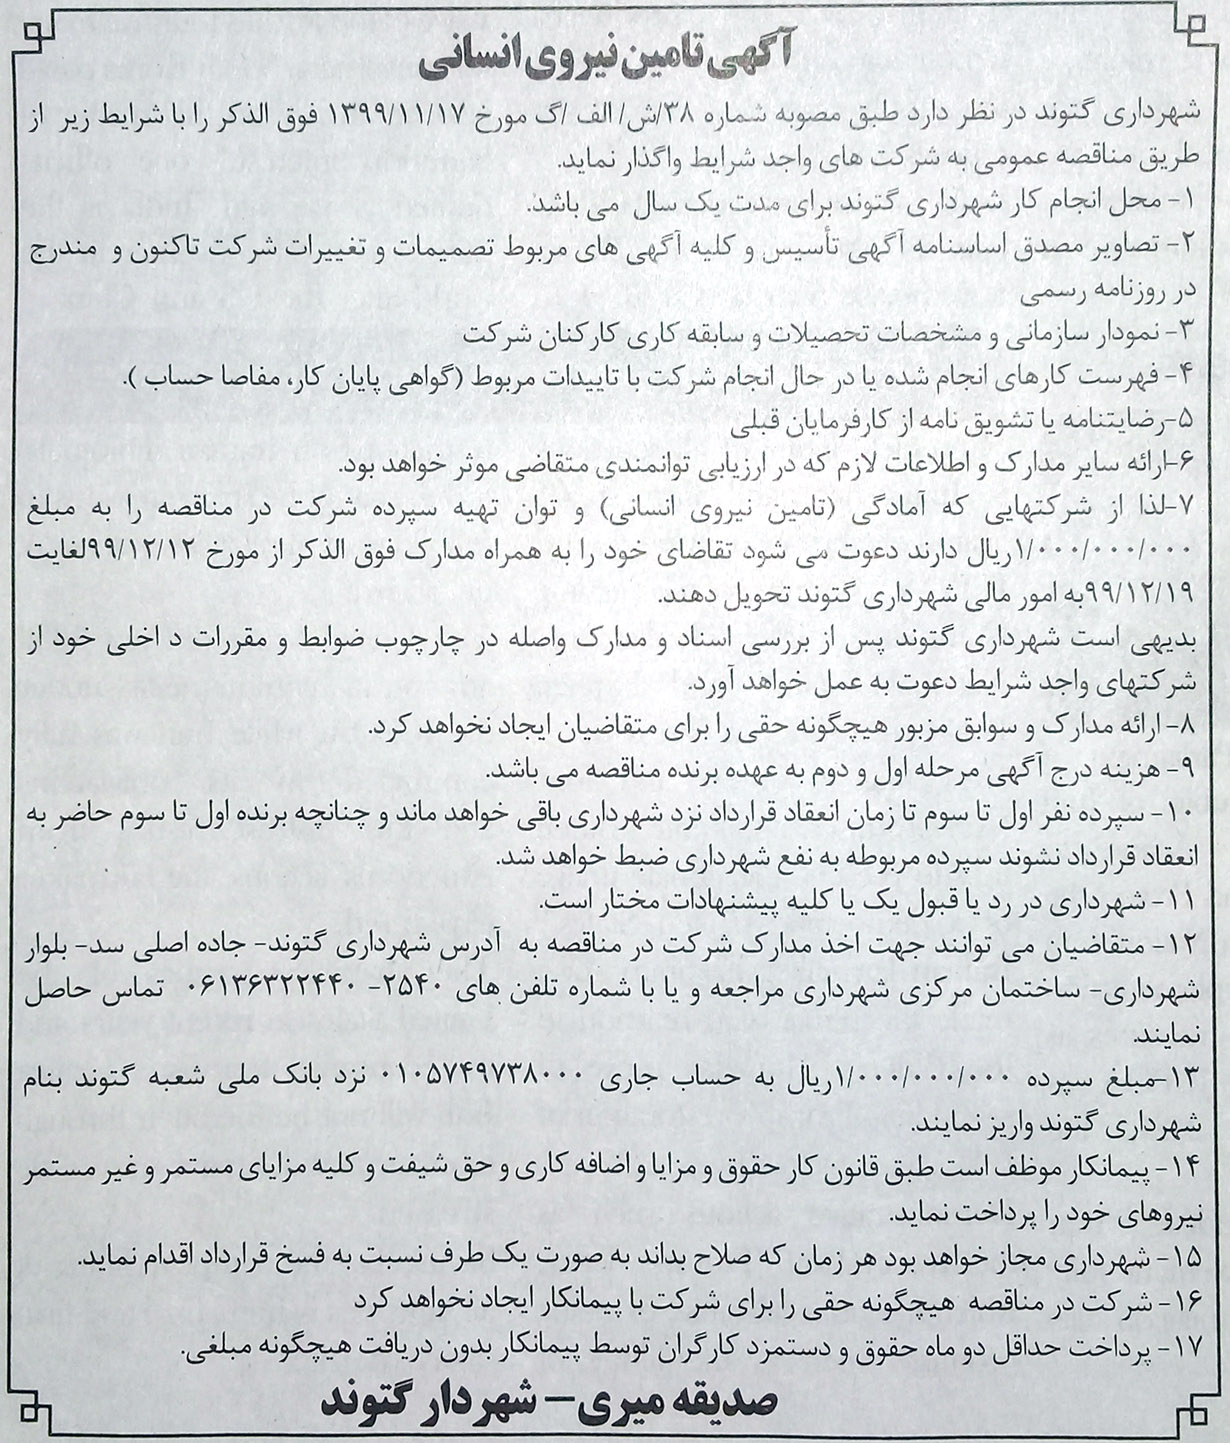 آگهی تامین نیروی انسانی
شهرداری گتوند در نظر دارد طبق مصوبه شماره ۳۸/ش/ الف /گ مورخ ۱۳۹۹/۱۱/۱۷ فوق الذکر را با شرایط زیر از
طریق مناقصه عمومی به شرکت های واجد شرایط واگذار نماید.
۱- محل انجام کار شهرداری گتوند برای مدت یک سال می باشد.
۲- تصاویر مصدق اساسنامه آگهی تأسیس و کلیه آگهی های مربوط تصمیمات و تغییرات شرکت تاکنون و مندرج
در روزنامه رسمی
۳- نمودار سازمانی و مشخصات تحصیلات و سابقه کاری کارکنان شرکت
۴- فهرست کارهای انجام شده یا در حال انجام شرکت با تاییدات مربوط (گواهی پایان کار، مفاصا حساب ).
۵-رضایتنامه یا تشویق نامه از کارفرمایان قبلی
۶-ارائه سایر مدارک و اطلاعات لازم که در ارزیابی توانمندی متقاضی موثر خواهد بود.
۷-لذا از شرکتهایی که آمادگی (تامین نیروی انسانی) و توان تهیه سپرده شرکت در مناقصه را به مبلغ
۱/۰۰۰/۰۰۰/۰۰۰ریال دارند دعوت می شود تقاضای خود را به همراه مدارک فوق الذکر از مورخ ۹۹/۱۲/۱۲لغایت
۹۹/۱۲/۱۹به امور مالی شهرداری گتوند تحویل دهند.
بدیهی است شهرداری گتوند پس از بررسی اسناد و مدارک واصله در چارچوب ضوابط و مقررات د اخلی خود از
شرکتهای واجد شرایط دعوت به عمل خواهد آورد.
۸- ارائه مدارک و سوابق مزبور هیچگونه حقی را برای متقاضیان ایجاد نخواهد کرد.
۹- هزینه درج آگهی مرحله اول و دوم به عهده برنده مناقصه می باشد.
۱۰- سپرده نفر اول تا سوم تا زمان انعقاد قرارداد نزد شهرداری باقی خواهد ماند و چنانچه برنده اول تا سوم حاضر به
انعقاد قرارداد نشوند سپرده مربوطه به نفع شهرداری ضبط خواهد شد.
۱۱- شهرداری در رد یا قبول یک یا کلیه پیشنهادات مختار است.
۱۲- متقاضیان می توانند جهت اخذ مدارک شرکت در مناقصه به آدرس شهرداری گتوند- جاده اصلی سد- بلوار
شهرداری- ساختمان مرکزی شهرداری مراجعه و یا با شماره تلفن های ۲۵۴۰- ۰۶۱۳۶۳۲۲۴۴۰ تماس حاصل
نمایند.
۱۳-مبلغ سپرده ۱/۰۰۰/۰۰۰/۰۰۰ریال به حساب جاری ۰۱۰۵۷۴۹۷۳۸۰۰۰ نزد بانک ملی شعبه گتوند بنام
شهرداری گتوند واریز نمایند.
۱۴- پیمانکار موظف است طبق قانون کار حقوق و مزایا و اضافه کاری و حق شیفت و کلیه مزایای مستمر و غیر مستمر
نیروهای خود را پرداخت نماید.
۱۵- شهرداری مجاز خواهد بود هر زمان که صلاح بداند به صورت یک طرف نسبت به فسخ قرارداد اقدام نماید.
۱۶- شرکت در مناقصه هیچگونه حقی را برای شرکت با پیمانکار ایجاد نخواهد کرد
۱۷- پرداخت حداقل دو ماه حقوق و دستمزد کارگران توسط پیمانکار بدون دریافت هیچگونه مبلغی.
صدیقه میری- شهردار گتوند